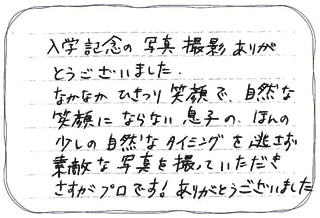 入学記念の写真撮影ありが
とうございました.
なかなかひきつり笑顔で、自然な
笑顔にならない息子の、ほんの
少しの自然なタイミングを逃さず
素敵な写真を撮っていただき
さすがプロです!ありがとうございました